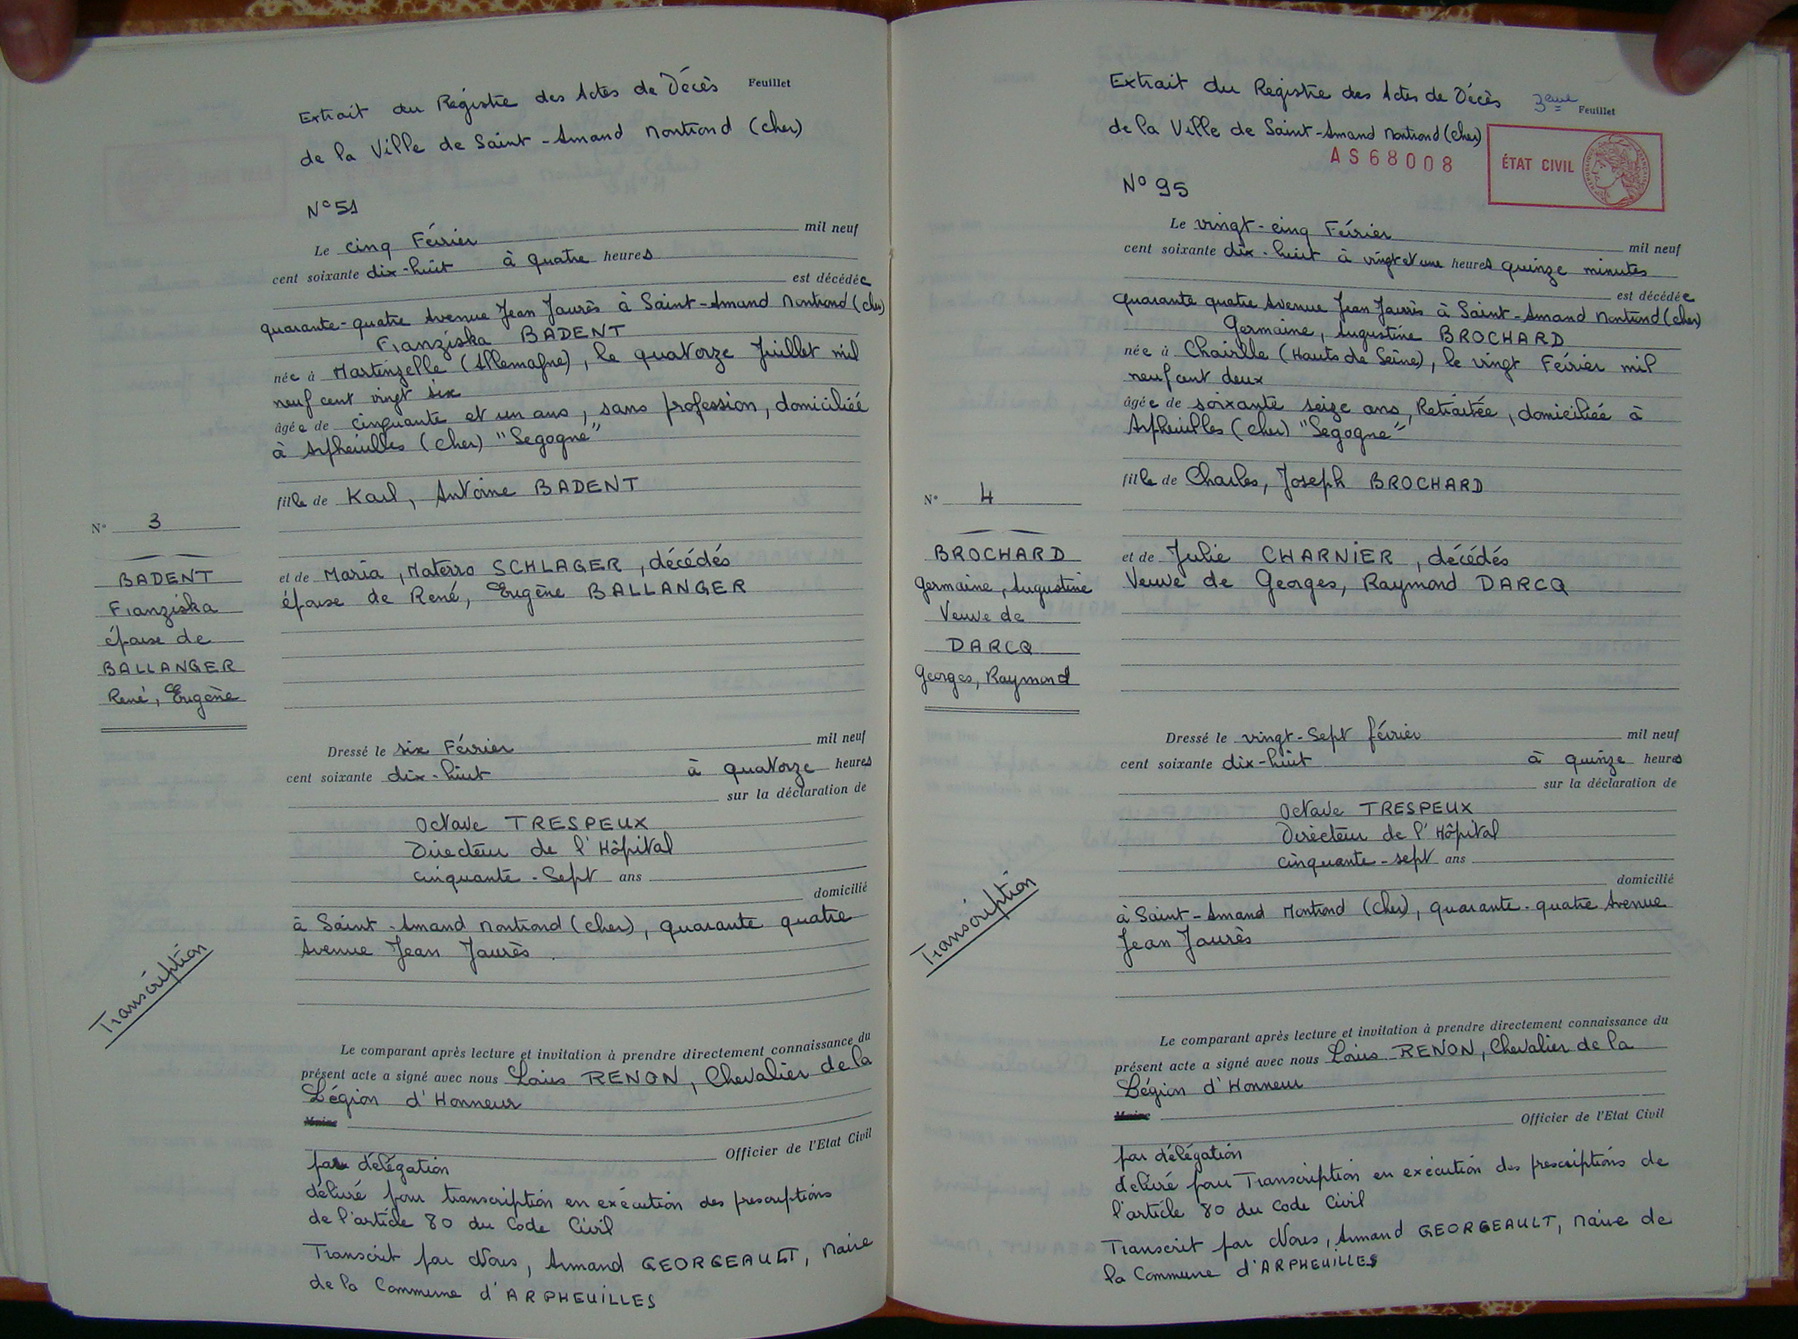 Extrait du Registre des Actes de Décès Feuillet
de la Ville de Saint-Amand Montrond (Cher)
N° 51
Le cinq Février mil neuf
cent soixante dix-huit à quatre heures
est décédée
quarante-quatre Avenue Jean Jaurès à Saint-Amand Montrond (Cher)
Franziska BADENT
née à Martinzelle (Allemagne), le quatorze Juillet mil
neuf cent vingt six
âgée de cinquante et un ans, sans profession, domiciliée
à Arpheuilles (Cher) "Segogne"
fille de Karl, Antoine BADENT
N° 3
BADENT
Franziska
épouse de
BALLANGER
René, Eugène
et de Maria, Materro SCHLAGER, décédés
épouse de René, Eugène BALLANGER
Dressé le six Février mil neuf
cent soixante dix-huit à quatorze heures
sur la déclaration de
Octave TRESPEUX
Directeur de l'Hôpital
cinquante-sept ans
domicilié
à Saint-Amand Montrond (Cher), quarante quatre
Avenue Jean Jaurès.
Transcription
Le comparant après lecture et invitation à prendre directement connaissance du
présent acte a signé avec nous Louis RENON, Chevalier de la
Légion d'Honneur
Maire
Officier de l'Etat Civil
par délégation
délivré pour transcription en exécution des prescriptions
de l'article 80 du Code Civil
Transcrit par Nous, Armand GEORGEAULT, Maire
de la Commune d'ARPHEUILLES
Extrait du Registre des Actes de Décès 3eme Feuillet
de la Ville de Saint-Amand Montrond (Cher)
AS68008
ÉTAT CIVIL
N° 95
Le vingt-cinq Février mil neuf
cent soixante dix-huit à vingt et une heures quinze minutes
est décédée
quarante quatre Avenue Jean Jaurès à Saint-Amand Montrond (Cher)
Germaine, Augustine BROCHARD
née à Chaville (Hauts de Seine), le vingt Février mil
neuf cent deux
âgée de soixante seize ans, Retraitée, domiciliée à
Arpheuilles (Cher) "Segogne"
fille de Charles, Joseph BROCHARD
N° 4
BROCHARD
Germaine, Augustine
Veuve de
DARCQ
Georges, Raymond
et de Julie CHARNIER, décédés
Veuve de Georges, Raymond DARCQ
Dressé le vingt-sept février mil neuf
cent soixante dix-huit à quinze heures
sur la déclaration de
Octave TRESPEUX
Directeur de l'Hôpital
cinquante-sept ans
domicilié
à Saint-Amand Montrond (Cher), quarante-quatre Avenue
Jean Jaurès
Transcription
Le comparant après lecture et invitation à prendre directement connaissance du
présent acte a signé avec nous Louis RENON, Chevalier de la
Légion d'Honneur
Maire
Officier de l'Etat Civil
par délégation
délivré pour Transcription en exécution des prescriptions de
l'article 80 du Code Civil
Transcrit par Nous, Armand GEORGEAULT, Maire de
la Commune d'ARPHEUILLES